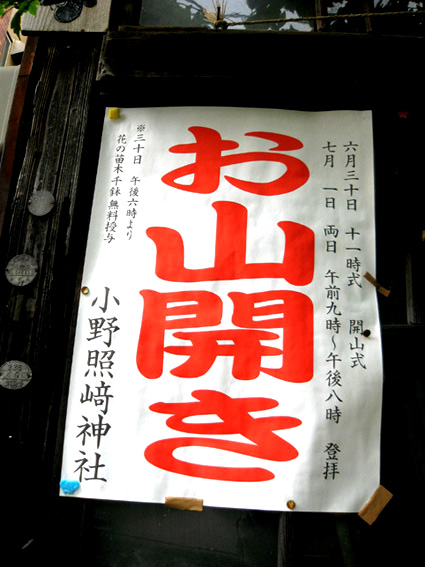 六月三十日 十一時式 開山式
七月 一日 両日 午前九時～午後八時 登拝
お山開き
※三十日 午後六時より
花の苗木千鉢無料授与
小野照﨑神社